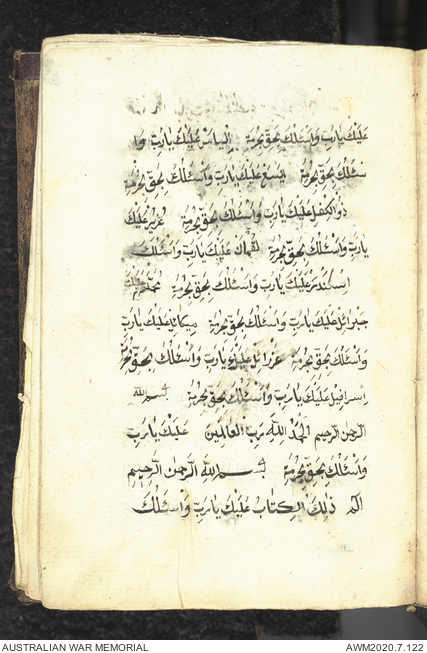 عَلَيْكَ يَارَبِّ وَاَسْئَلُكَ بِحَقِّ بِحُرْمَةِ اِلْيَاسْ عَلَيْكَ يَارَبِّ وَا
سْئَلُكَ بِحَقِّ بِحُرْمَةِ اليسع عَلَيْكَ يَارَبِّ وَاَسْئَلُكَ بِحَقِّ بِحُرْمَةِ
ذوالكفل عَلَيْكَ يَارَبِّ وَاَسْئَلُكَ بِحَقِّ بِحُرْمَةِ عزير عَلَيْكَ
يَارَبِّ وَاَسْئَلُكَ بِحَقِّ بِحُرْمَةِ لقمان عَلَيْكَ يَارَبِّ وَاَسْئَلُكَ
اسكندر عَلَيْكَ يَارَبِّ وَاَسْئَلُكَ بِحَقِّ بِحُرْمَةِ
جبرائل عَلَيْكَ يَارَبِّ وَاَسْئَلُكَ بِحَقِّ بِحُرْمَةِ ميكائل عَلَيْكَ يَارَبِّ
وَاَسْئَلُكَ بِحَقِّ بِحُرْمَةِ عزرائل عَلَيْكَ يَارَبِّ وَاَسْئَلُكَ بِحَقِّ بِحُرْمَةِ
اسرافيل عَلَيْكَ يَارَبِّ وَاَسْئَلُكَ بِحَقِّ بِحُرْمَةِ بسم الله
الرّحمن الرّحيم اَلْحَمْدُ لِلّٰهِ رَبِّ الْعَالَمِينَ عَلَيْكَ يَارَبِّ
وَاَسْئَلُكَ بِحَقِّ بِحُرْمَةِ بِسْمِ اللهِ الرَّحْمٰنِ الرَّحِيمِ
الم ذٰلِكَ الْكِتَابُ عَلَيْكَ يَارَبِّ وَاَسْئَلُكَ
AUSTRALIAN WAR MEMORIAL AWM2020.7.122